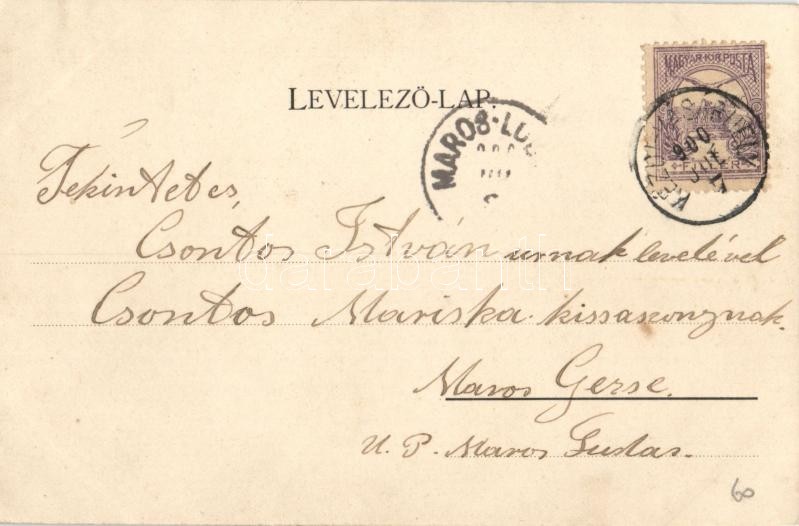 LEVELEZŐ-LAP.
MAGYAR KIR. POSTA
FILLER
900
MAROS-LU
Tekintetes,
Csontos István urnak levelével
Csontos Mariska kissaszonznak.
Maros Gerse.
U. P. Maros Ludas.
60
darabanth